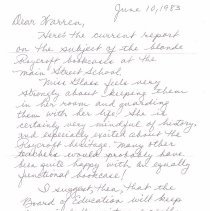 June 10, 1983
Dear Warren,
Here's the current report
on the subject of the blonde
Roycroft bookcase at the
Main Street School.
Miss Glass feels very
strongly about keeping them
in her room and guarding
them with her life. She is
certainly very mindful of history,
and especially excited about the
Roycroft heritage. Many other
teachers would probably have
been quite happy with an equally
functional bookcase!
I suggest, then, that the
Board of Education will keep